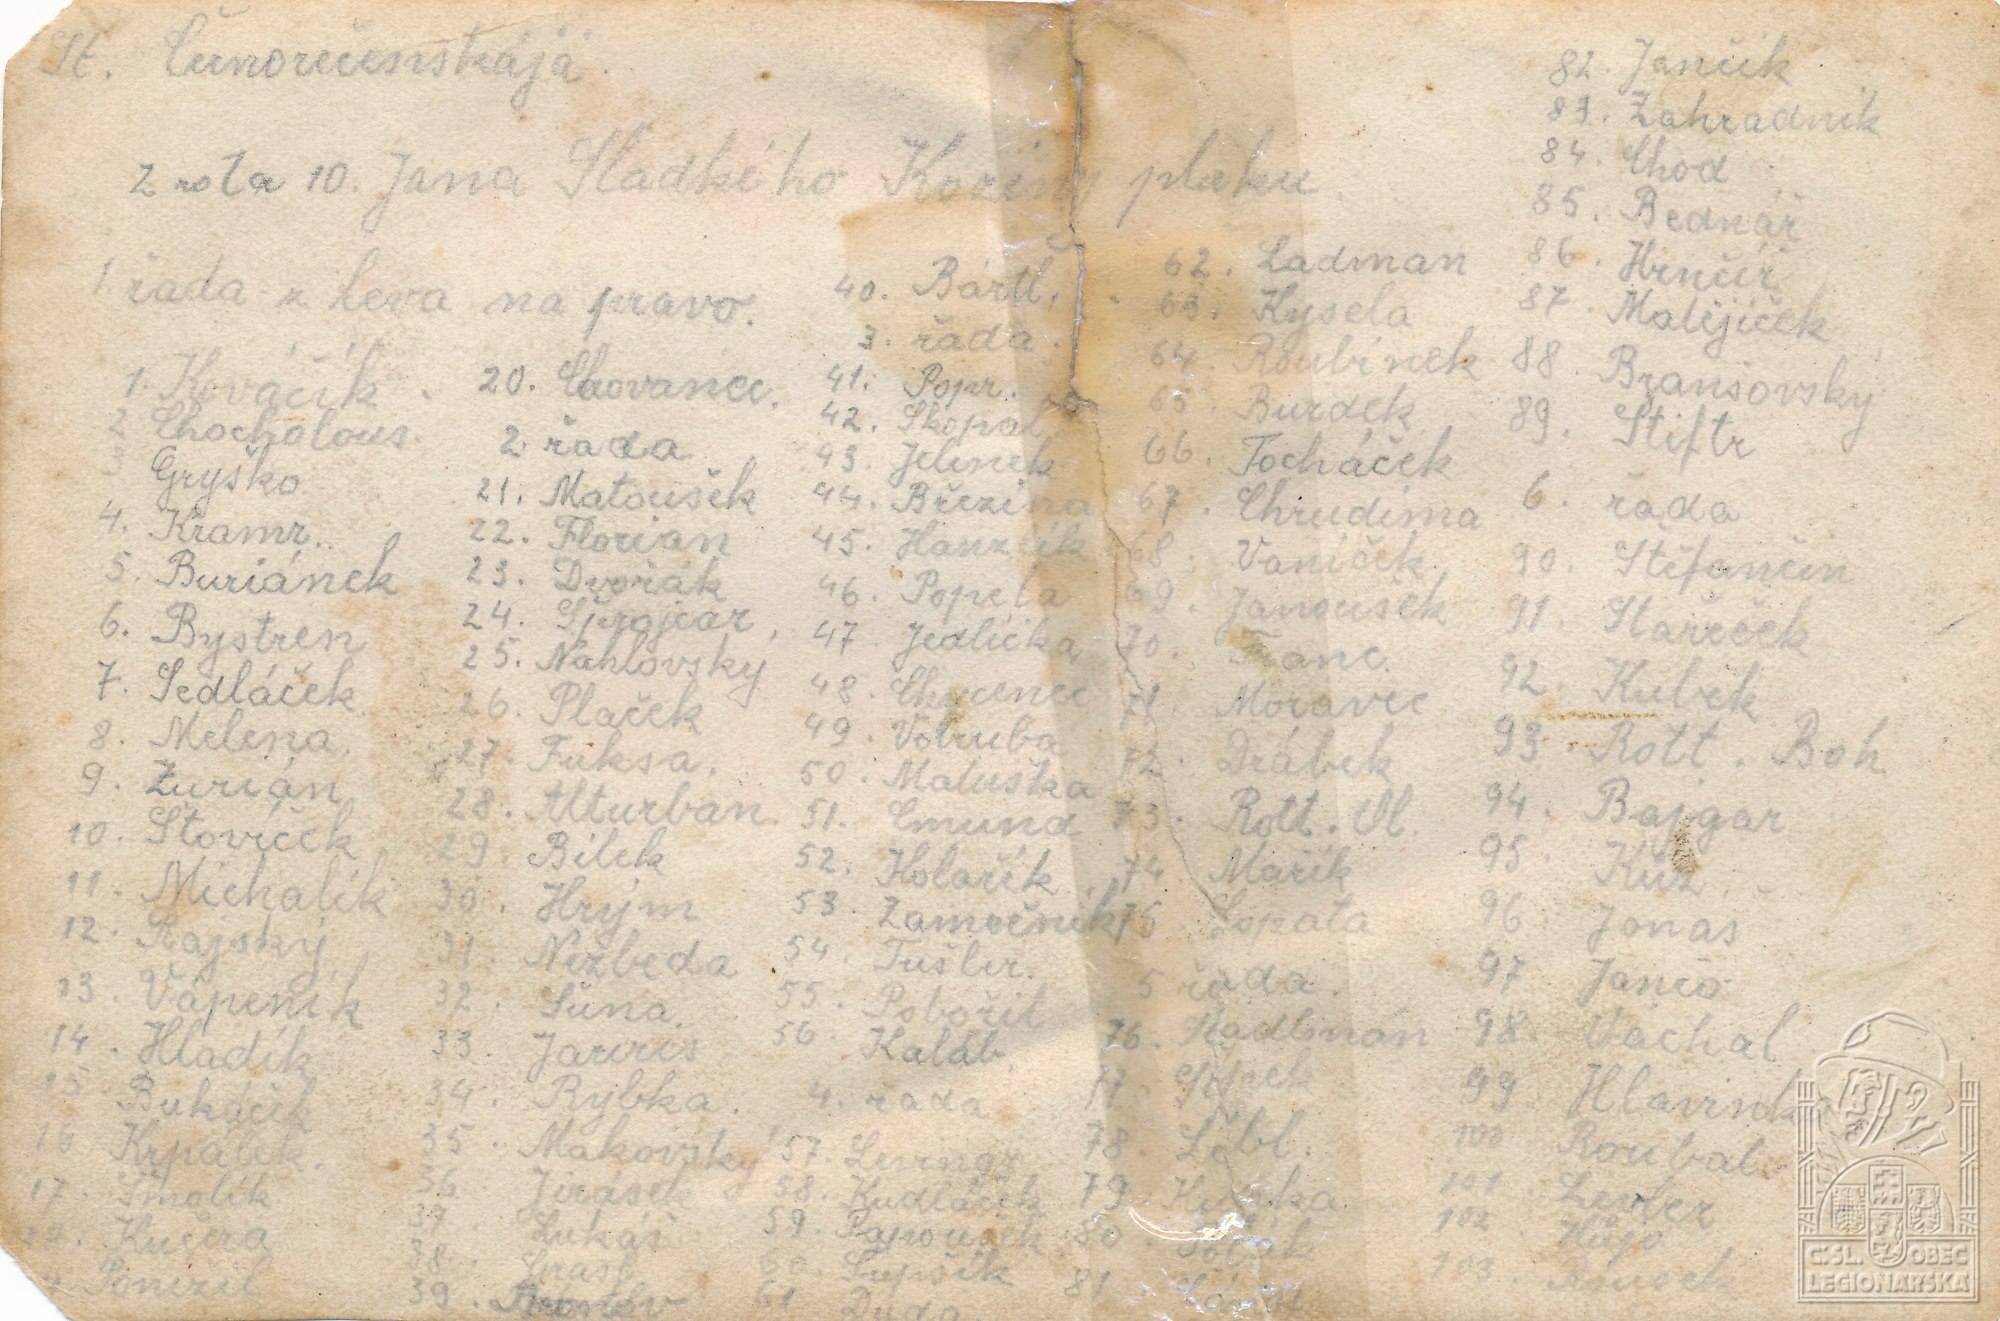 St. Čunorečenskája.
2 rota 10. Jana Sladkého Koziny pluku.
1 řada z leva na pravo.
1. Kováčík
2 Chocholous.
3 Gryško
4. Kramr.
5. Buriánek
6. Bystřen
7. Sedláček
8. Melena.
9. Žurián
10. Šťovíček
11. Michalík
12. Rajský
13. Vápeník
14. Hladík
15. Bukáček
16 Krpálek.
17. Smolík
Kučera
Pomezil
20. Chovanec.
2 řada
21. Matoušek
22. Florian
23. Dvořák
24.
25. Nahlovský
26. Plaček
27. Fuksa.
28. Alturban
29. Bílek
30. Hrým
31. Nezbeda
32. Šuna.
33.
34. Rybka.
35. Makovský
36. Jirásek
37 Lukáš
38.
39.
40. Bártl.
3. řada.
41. Popr.
42. Skopal
43. Jelinek
44. Březina
45. Hanzlík
46. Popela
47 Jedlička
48.
49. Vobruba
50. Matuška
51. Emund
52. Kolařík
53. Zamečník
54. Tušler.
55. Pobořil
56. Kaláb.
4. řada
57.
58. Kudláček
59. Papoušek
60
61 Duda
62. Ladman
63. Kysela
64. Roubínek
65. Burdek
66. Tocháček
67. Chrudima
68. Vaníček
69. Janoušek
70. Franc.
71 Moravec
72. Drábek
73. Rott. Vl.
74. Mařík
75 Lopata
5 řada.
76. Kadlman
77.
78. Lébl.
79.
80
81
82. Jančik
83. Zahradnik
84. Chod
85. Bednář
86. Hrnčíř
87. Matějíček
88. Branšovský
89. Stiftr
6. řada
90. Štefančin
91. Stařeček
92. Kubek
93 Rott. Boh
94. Bajgar
95. Kůž.
96. Jonáš
97 Jančo
98. Váchal
99. Hlavinka
100 Roubal
101
102
103.
ČSL. OBEC
LEGIONÁŘSKÁ